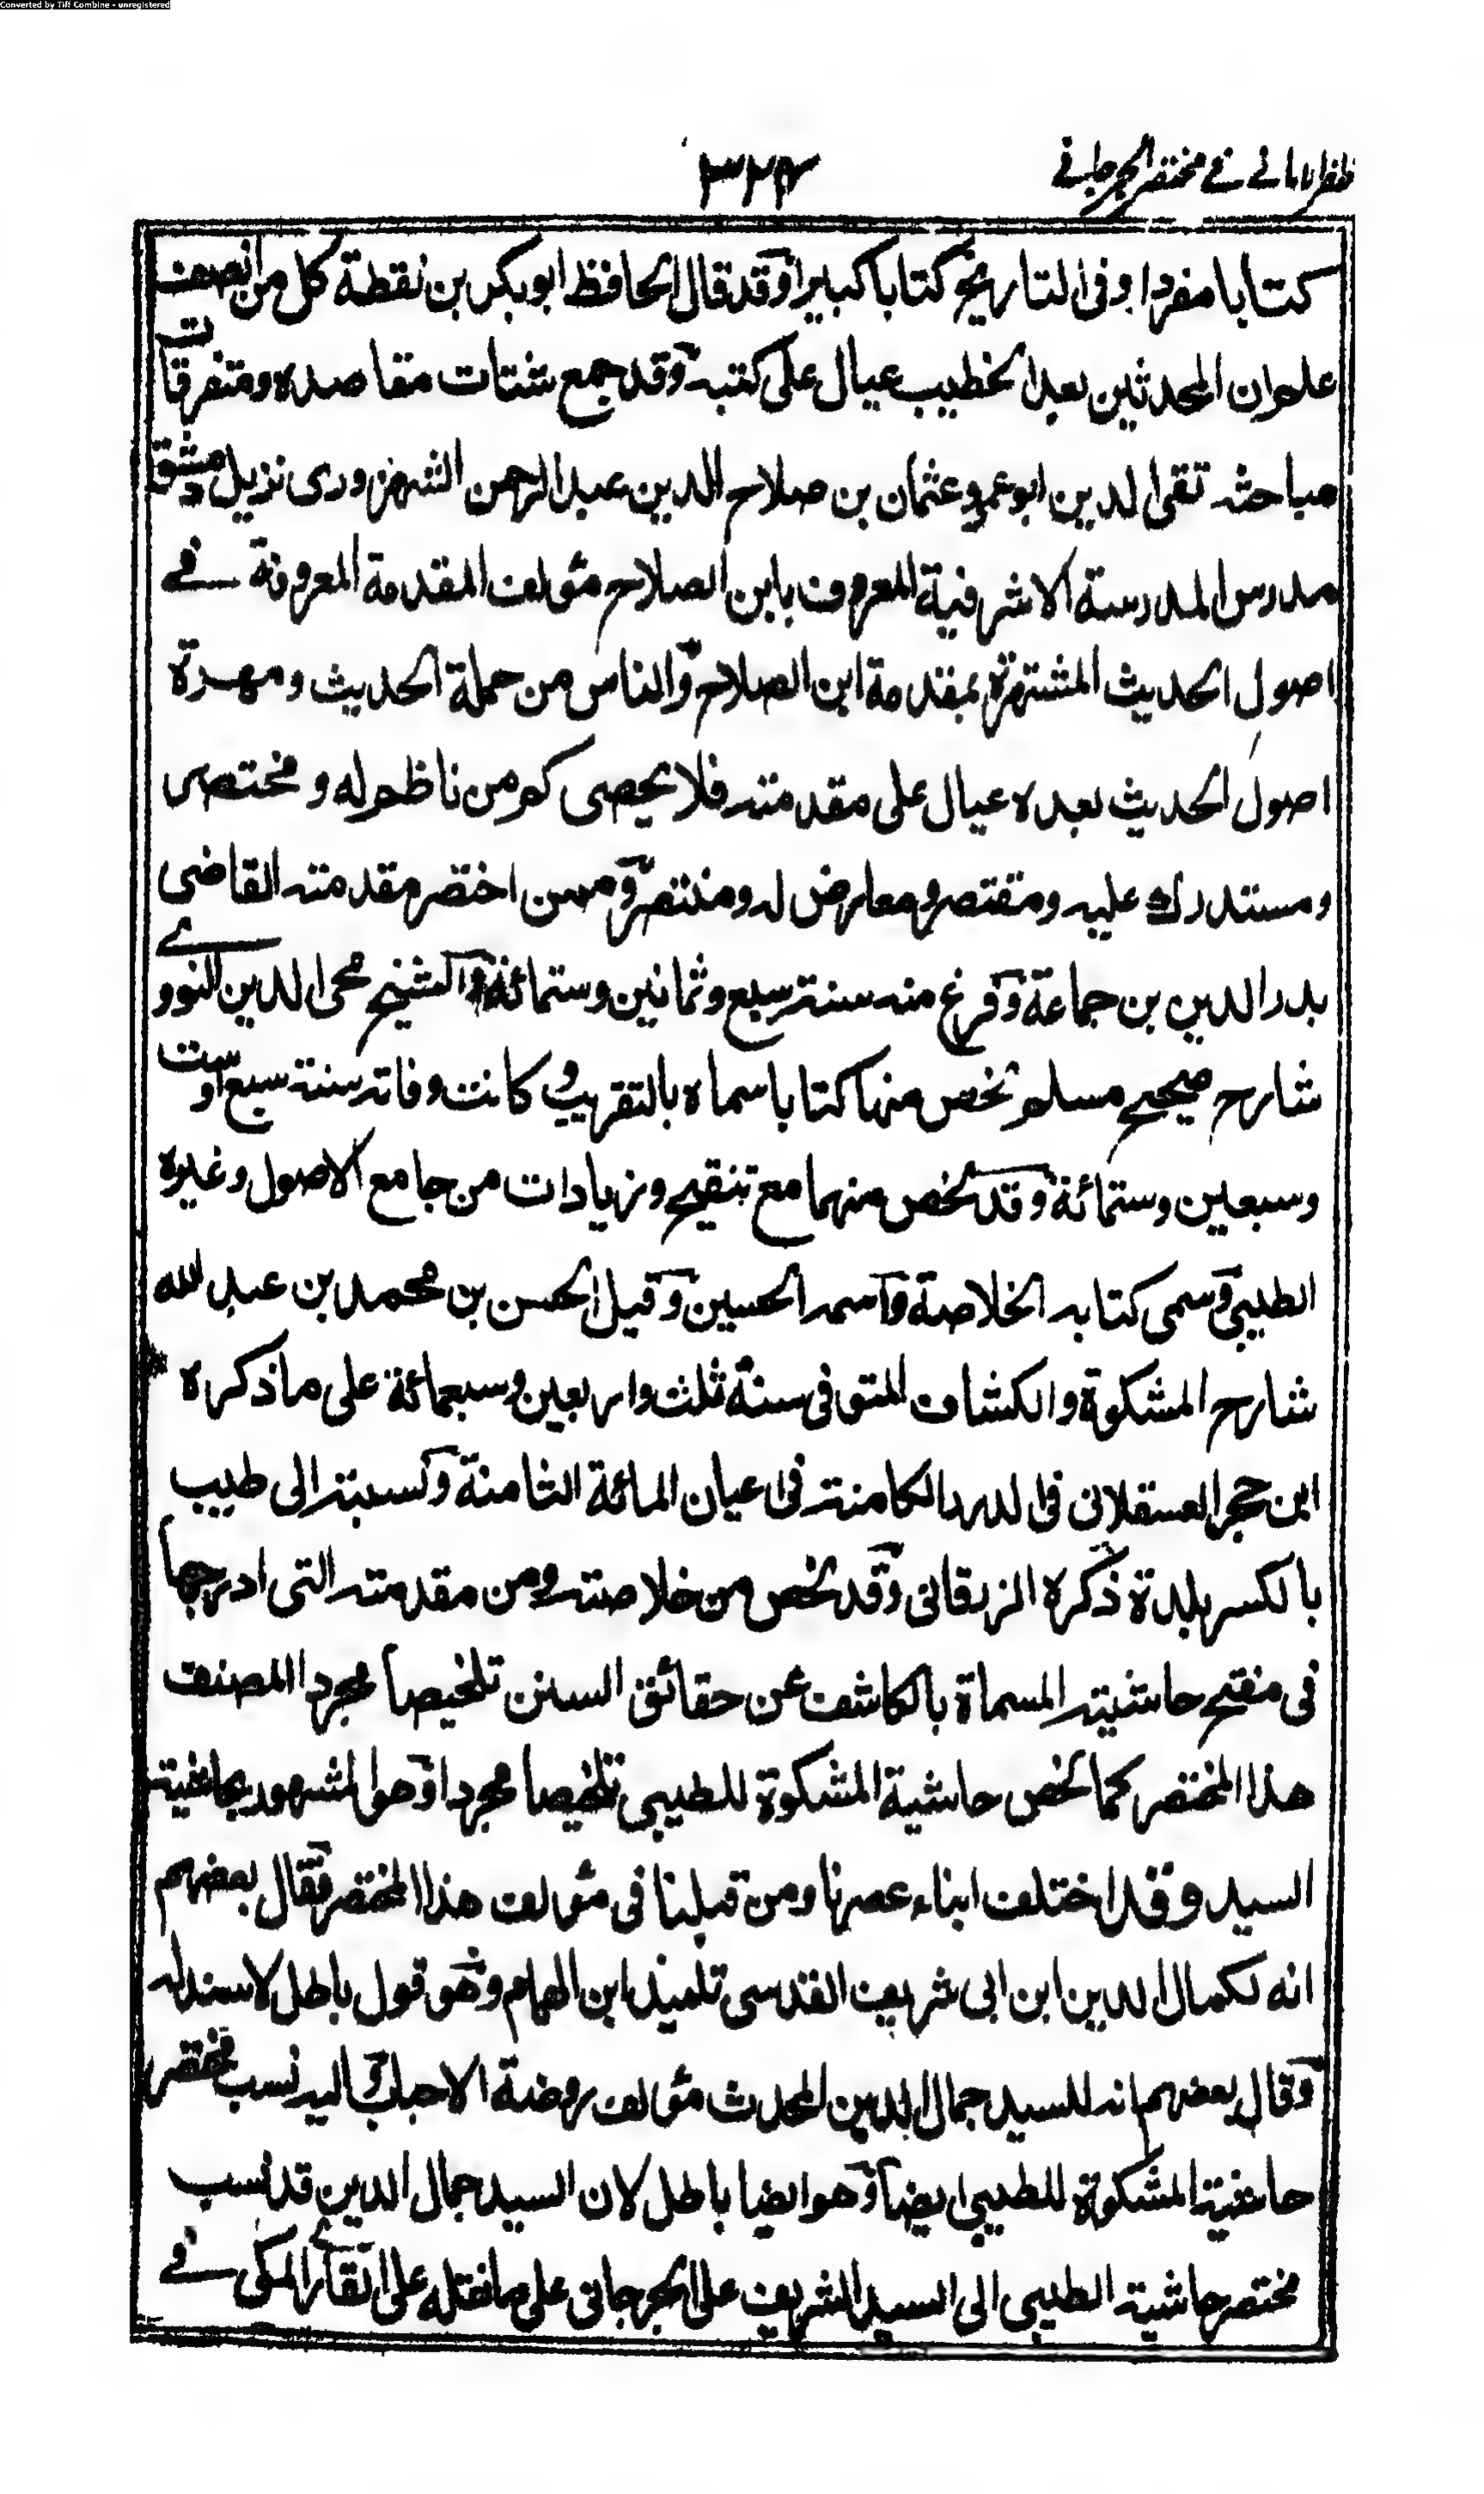 Converted by Tiff Combine - unregistered
ظفر الاماني في مختصر الجرجاني
٣٢٤
كتابا مفردا وفى التاريخ كتابا كبيرا وقد قال الحافظ ابو بكر بن نقطة كل من انصف
علم ان المحدثين بعد الخطيب عيال على كتبه وقد جمع شتات مقاصده ومتفرقات
مباحثه تقى الدين ابو عمرو عثمان بن صلاح الدين عبد الرحمن الشهرزورى نزيل دمشق
مدرس المدرسة الاشرفية المعروف بابن الصلاح مؤلف المقدمة المعروفة في
اصول الحديث المشتهرة بمقدمة ابن الصلاح والناس من حملة الحديث ومهرة
اصول الحديث بعده عيال على مقدمته فلا يحصى كم من ناظم له و مختصر
ومستدرك عليه ومقتصر ومعارض له ومنتصر وممن اختصر مقدمته القاضى
بدر الدين بن جماعة وفرغ منه سنة سبع وثمانين وستمائة والشيخ محى الدين النووي
شارح صحيح مسلم لخص منها كتابا سماه بالتقريب و كانت وفاته سنة سبع او ست
وسبعين وستمائة وقد لخص منهما مع تنقيح وزيادات من جامع الاصول وغيره
الطيبى وسمى كتابه الخلاصة واسمه الحسين وقيل الحسن بن محمد بن عبد الله
شارح المشكوة والكشاف المتوفى سنة ثلث واربعين وسبعمائة على ما ذكره
ابن حجر العسقلانى فى الدرر الكامنة فى اعيان المائة الثامنة ونسبته الى طيب
بالكسر بلدة ذكره الزرقانى وقد لخص من خلاصته ومن مقدمته التى ادرجها
فى مفتح حاشيته المسماة بالكاشف عن حقائق السنن تلخيصا مجردا المصنف
هذا المختصر كما لخص حاشية المشكوة للطيبى تلخيصا مجردا وهو المشهور بحاشية
السيد وقد اختلف ابناء عصرنا ومن قبلنا فى مؤلف هذا المختصر فقال بعضهم
انه لكمال الدين ابن ابى شريف القدسى تلميذ ابن الهمام وهو قول باطل لا سند له
وقال بعضهم انه للسيد جمال الدين المحدث مؤلف روضة الاحباب واليه نسب مختصر
حاشية المشكوة للطيبى ايضا وهو ايضا باطل لان السيد جمال الدين قد نسب
مختصر حاشية الطيبى الى السيد الشريف على الجرجانى على ما نقله على القاري المكى في